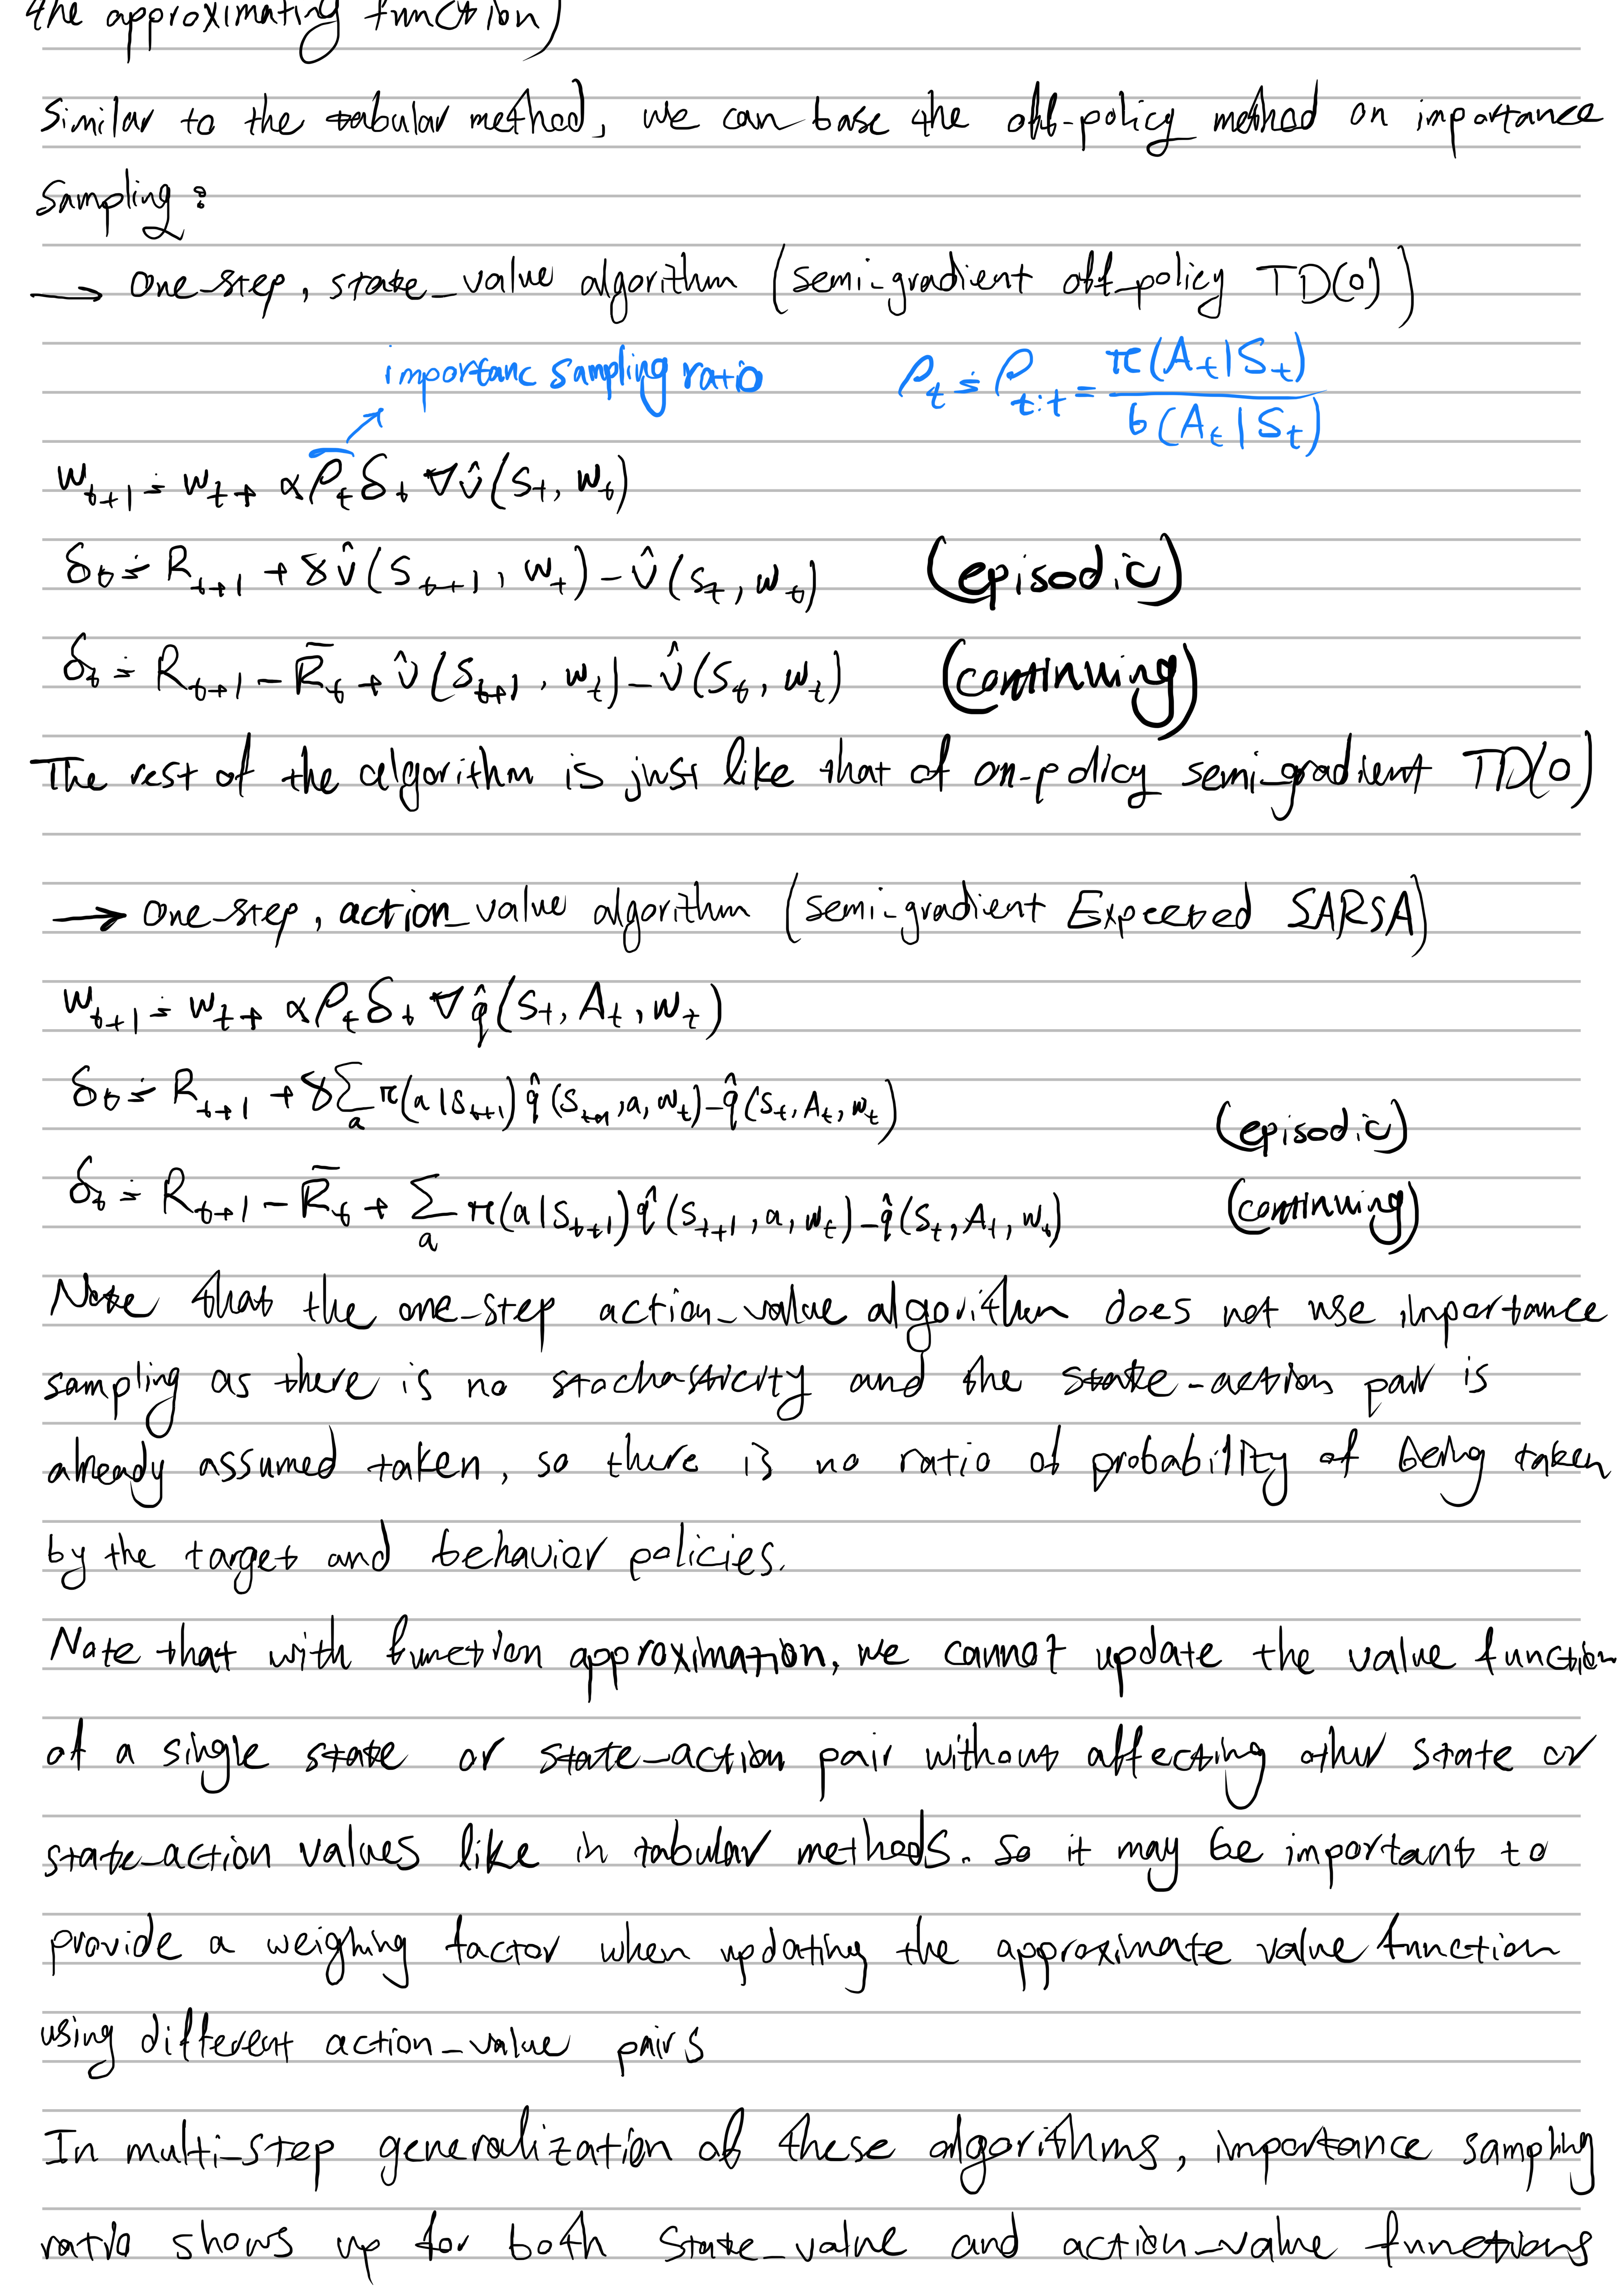 the approximating function)
Similar to the tabular method, we can base the off-policy method on importance
Sampling:
→ One-step, state_value algorithm (semi-gradient off-policy TD(0))
importanc sampling ratio ρ_t ≐ ρ_{t:t} = π(A_t|S_t) / b(A_t|S_t)
w_{t+1} ≐ w_t + α ρ_t δ_t ∇v̂(S_t, w_t)
δ_t ≐ R_{t+1} + γ v̂(S_{t+1}, w_t) - v̂(S_t, w_t) (episodic)
δ_t ≐ R_{t+1} - R̄_t + v̂(S_{t+1}, w_t) - v̂(S_t, w_t) (continuing)
The rest of the algorithm is just like that of on-policy semi_gradient TD(0)
→ One-step, action_value algorithm (semi-gradient Expected SARSA)
w_{t+1} ≐ w_t + α ρ_t δ_t ∇q̂(S_t, A_t, w_t)
δ_t ≐ R_{t+1} + γ Σ_a π(a|S_{t+1}) q̂(S_{t+1}, a, w_t) - q̂(S_t, A_t, w_t) (episodic)
δ_t ≐ R_{t+1} - R̄_t + Σ_a π(a|S_{t+1}) q̂(S_{t+1}, a, w_t) - q̂(S_t, A_t, w_t) (continuing)
Note that the one-step action_value algorithm does not use importance
sampling as there is no stochasticity and the state-action pair is
already assumed taken, so there is no ratio of probability of being taken
by the target and behavior policies.
Note that with function approximation, we cannot update the value function
of a single state or state-action pair without affecting other state or
state-action values like in tabular methods. So it may be important to
provide a weighing factor when updating the approximate value function
using different action_value pairs
In multi-step generalization of these algorithms, importance sampling
ratio shows up for both state_value and action_value functions